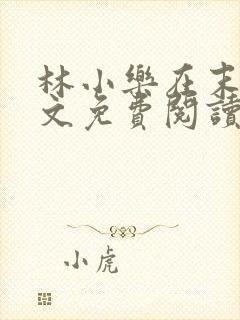 林小樂在末
文免費閱讀
小虎